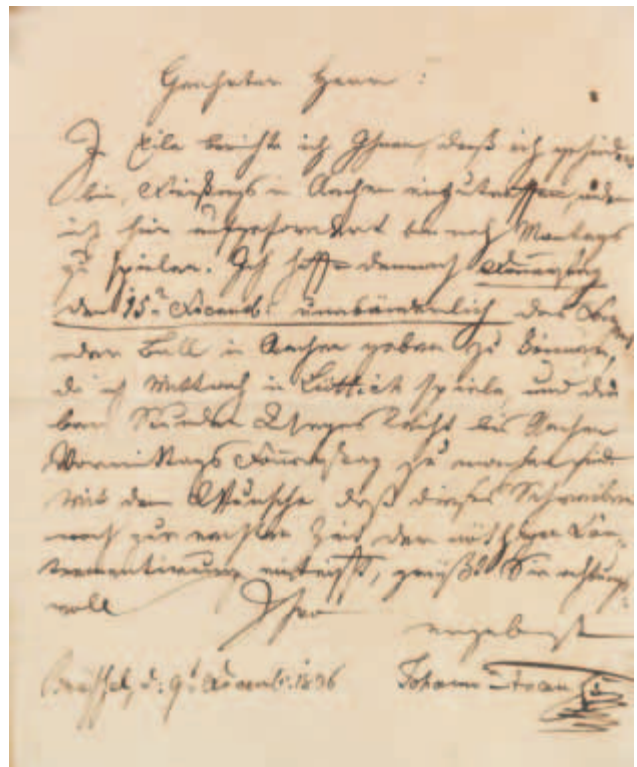 Geehrter Herr :
In Eile berichte ich Ihnen, daß ich
bin, in Aachen einzutreffen, indem
ich hier aufgefordert bin noch Montags
zu spielen. Ich hoffe dennoch Donnerstag
den 15. unabänderlich den
oder Ball in Aachen geben zu können,
da ich Mittwoch in Lüttich spiele, und die
Stunden Weges leicht bis Aachen
Vormittags Donnerstag zu machen sind.
Mit dem Wunsche daß dieses Schreiben
noch zur rechten Zeit der nöthigen
eintrifft, grüßt Sie achtungs-
voll Ihr
ergebenst
Brüssel, d: 9. 1836 Johann Strauß